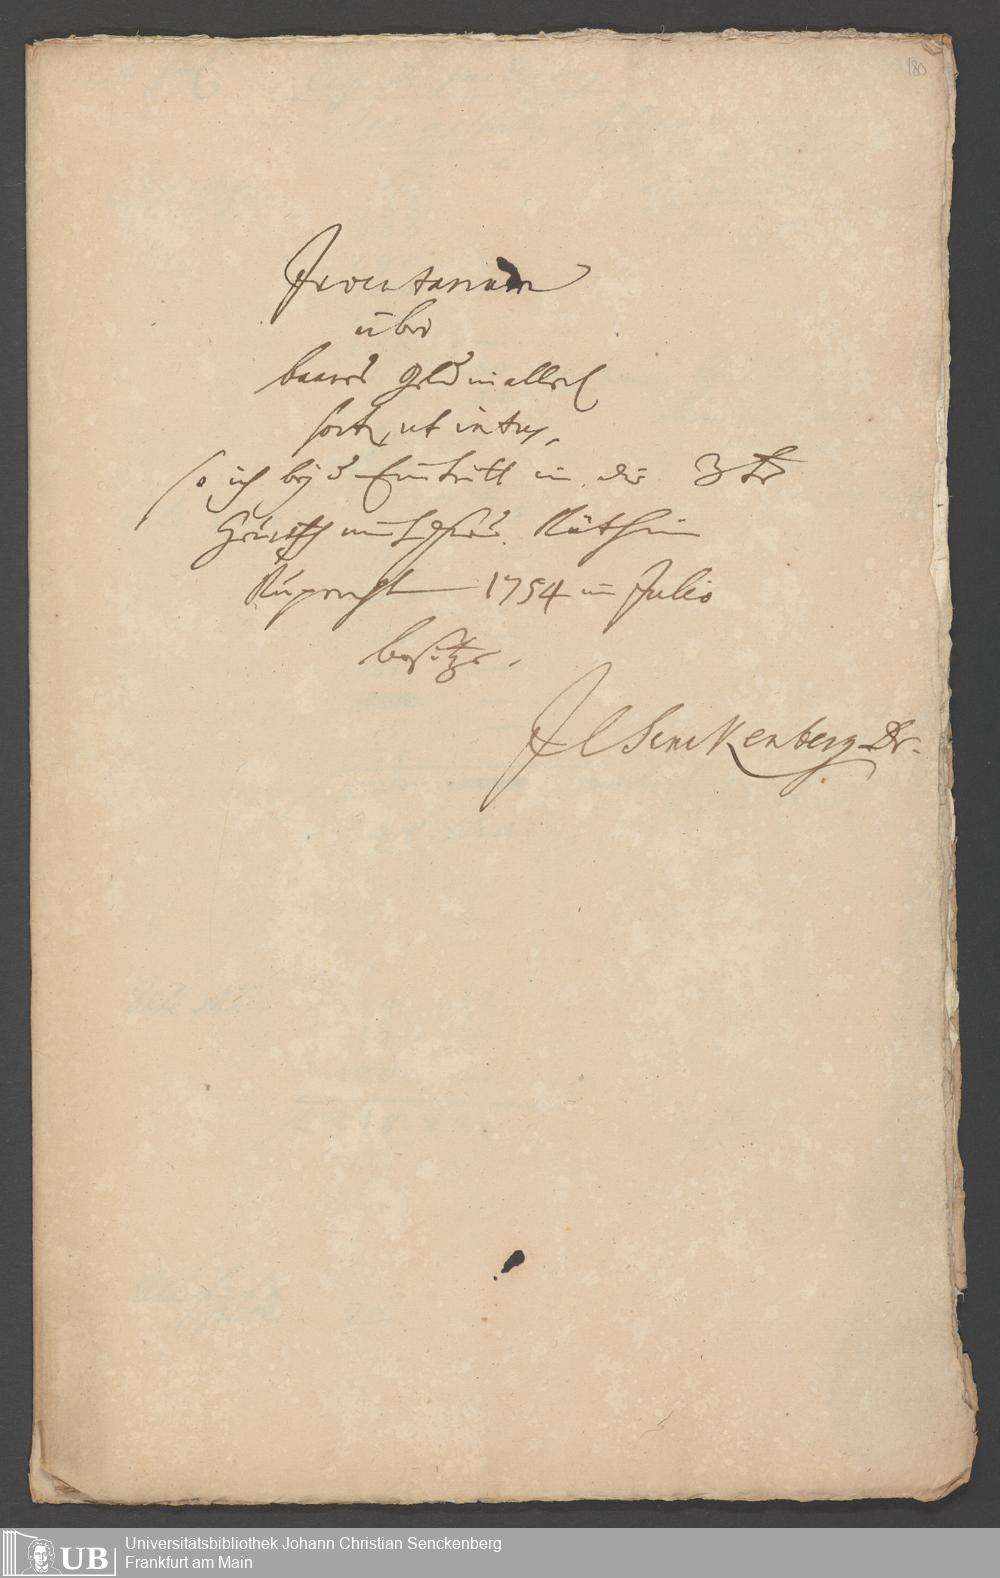 180
Inventarium
über
baares Geld in allerl
sort, ut intus,
so ich bey Eintritt in die 3te
Heurath mit Räthin
Ruprecht 1754 im Julio
besitze.
JC Senckenberg Dr.
Universitätsbibliothek Johann Christian Senckenberg
Frankfurt am Main
UB